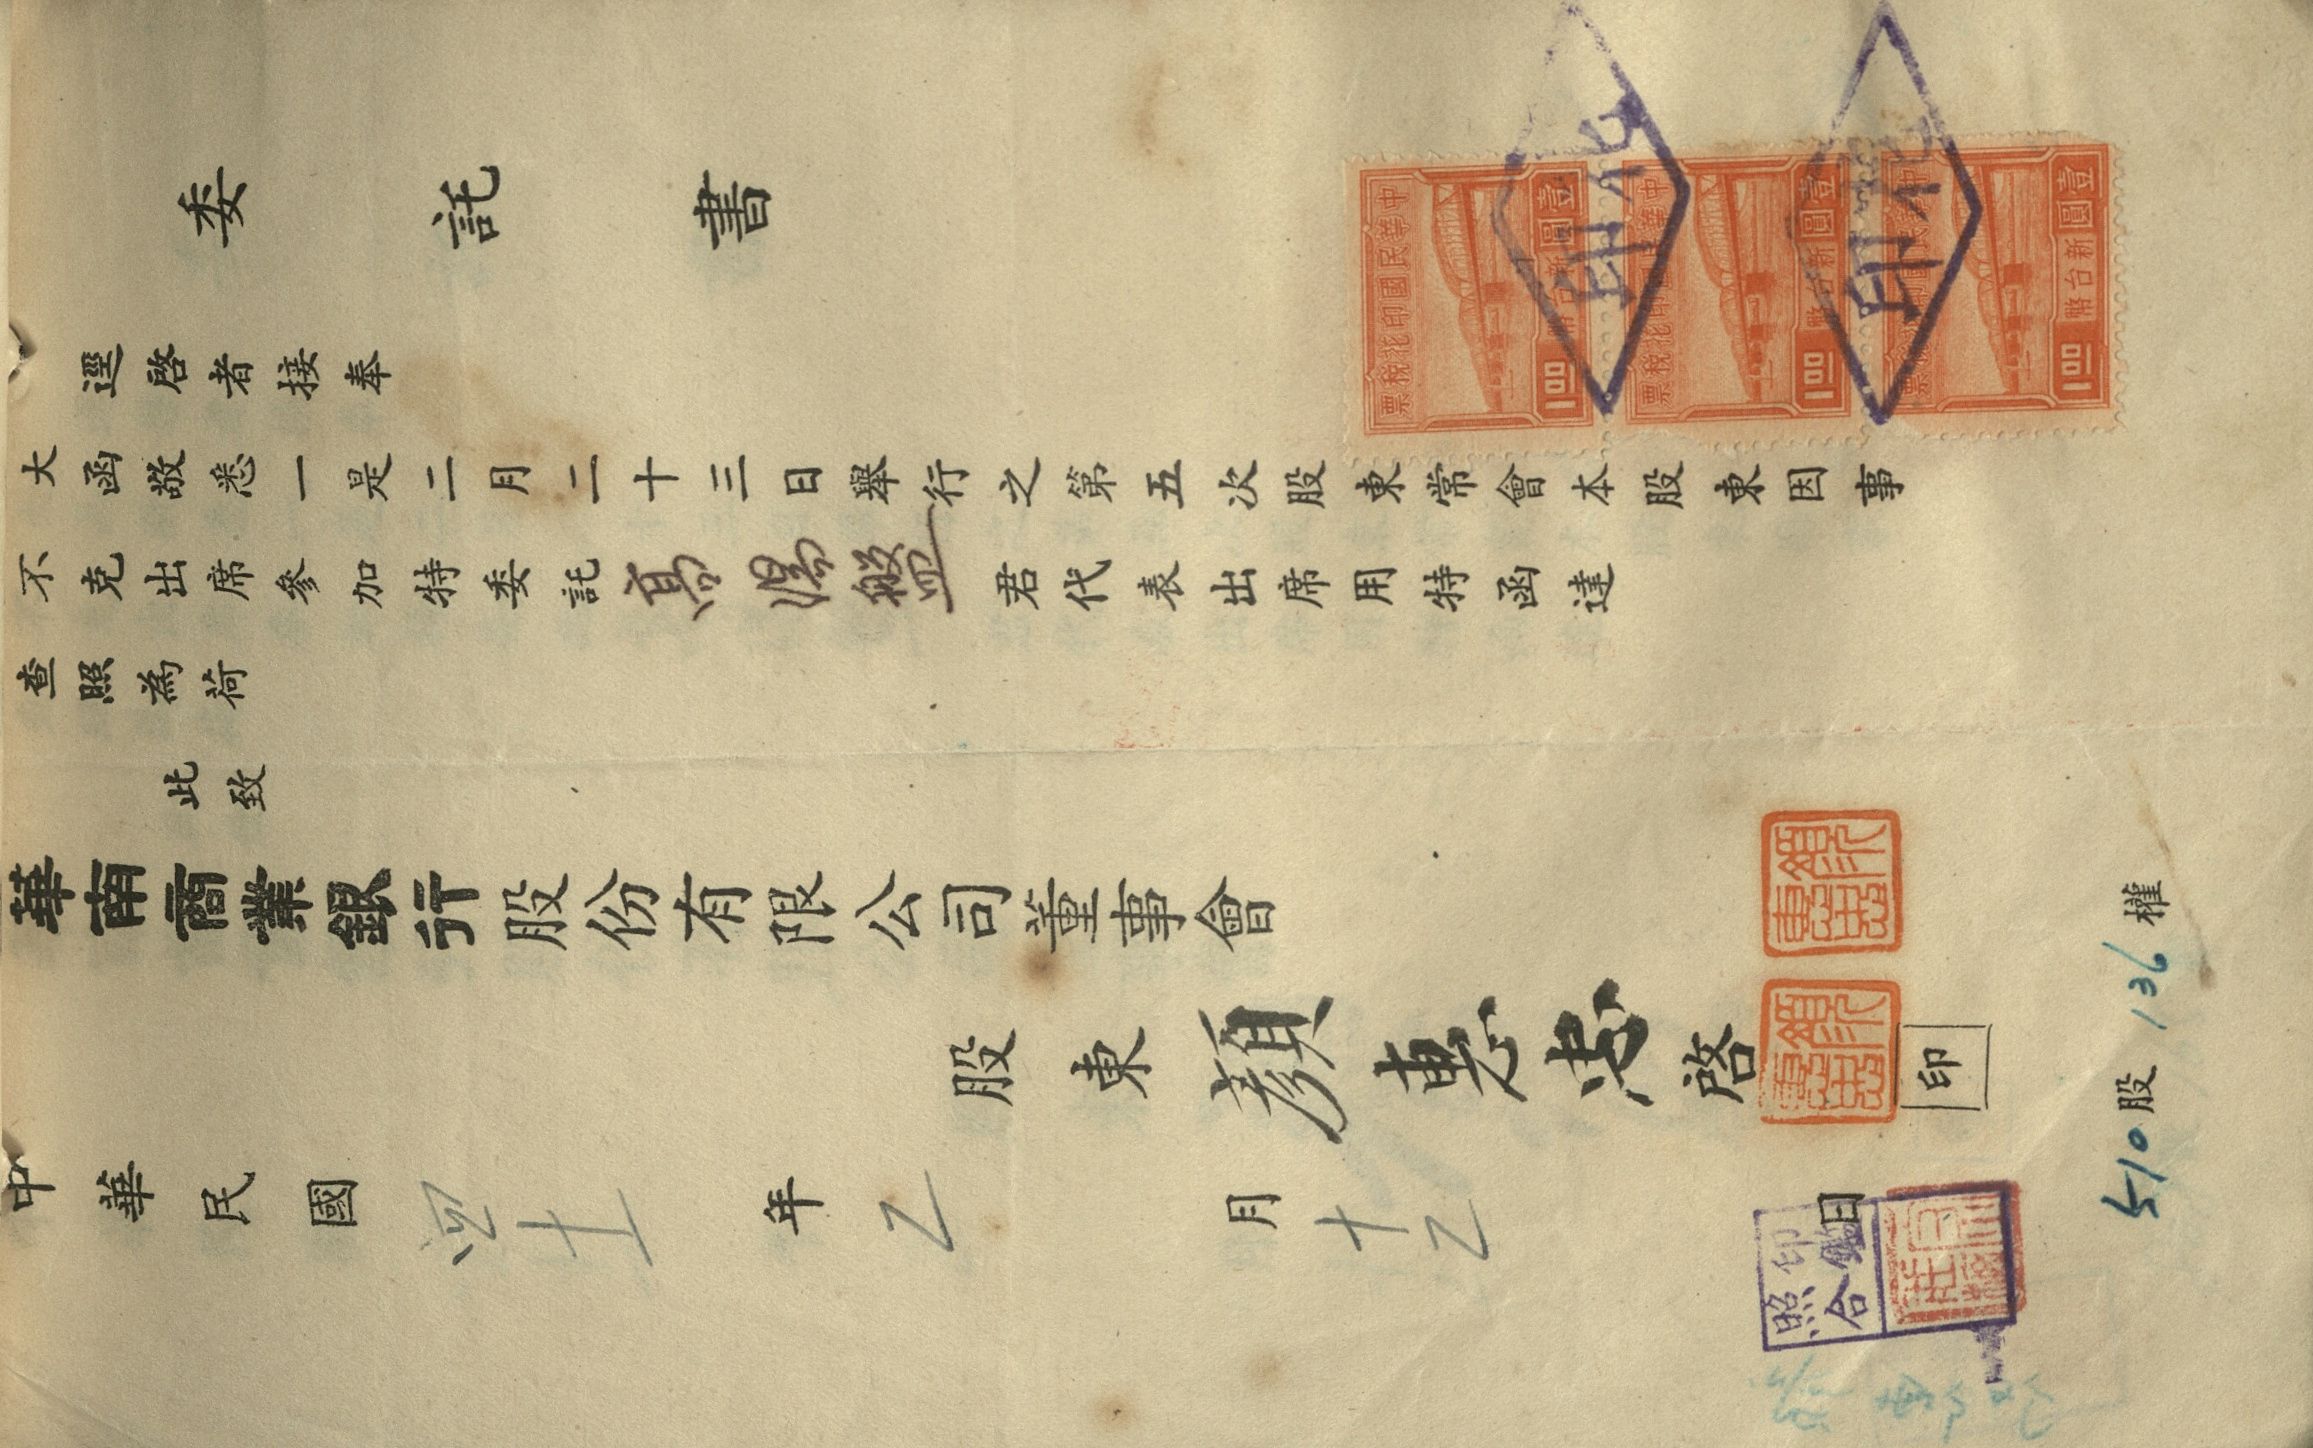 委託書
逕啓者接奉
大函敬悉一是二月二十三日舉行之第五次股東常會本股東因事
不克出席參加特委託高湯盤君代表出席用特函達
查照為荷
此致
華南商業銀行股份有限公司董事會
股東顏惠忠啓
印
中華民國四十一年2月十2日
510股136權
中華民國印花稅票
壹圓新台幣
1.00
中華民國印花稅票
壹圓新台幣
1.00
中華民國印花稅票
壹圓新台幣
1.00
印花
印花
印鑑照合